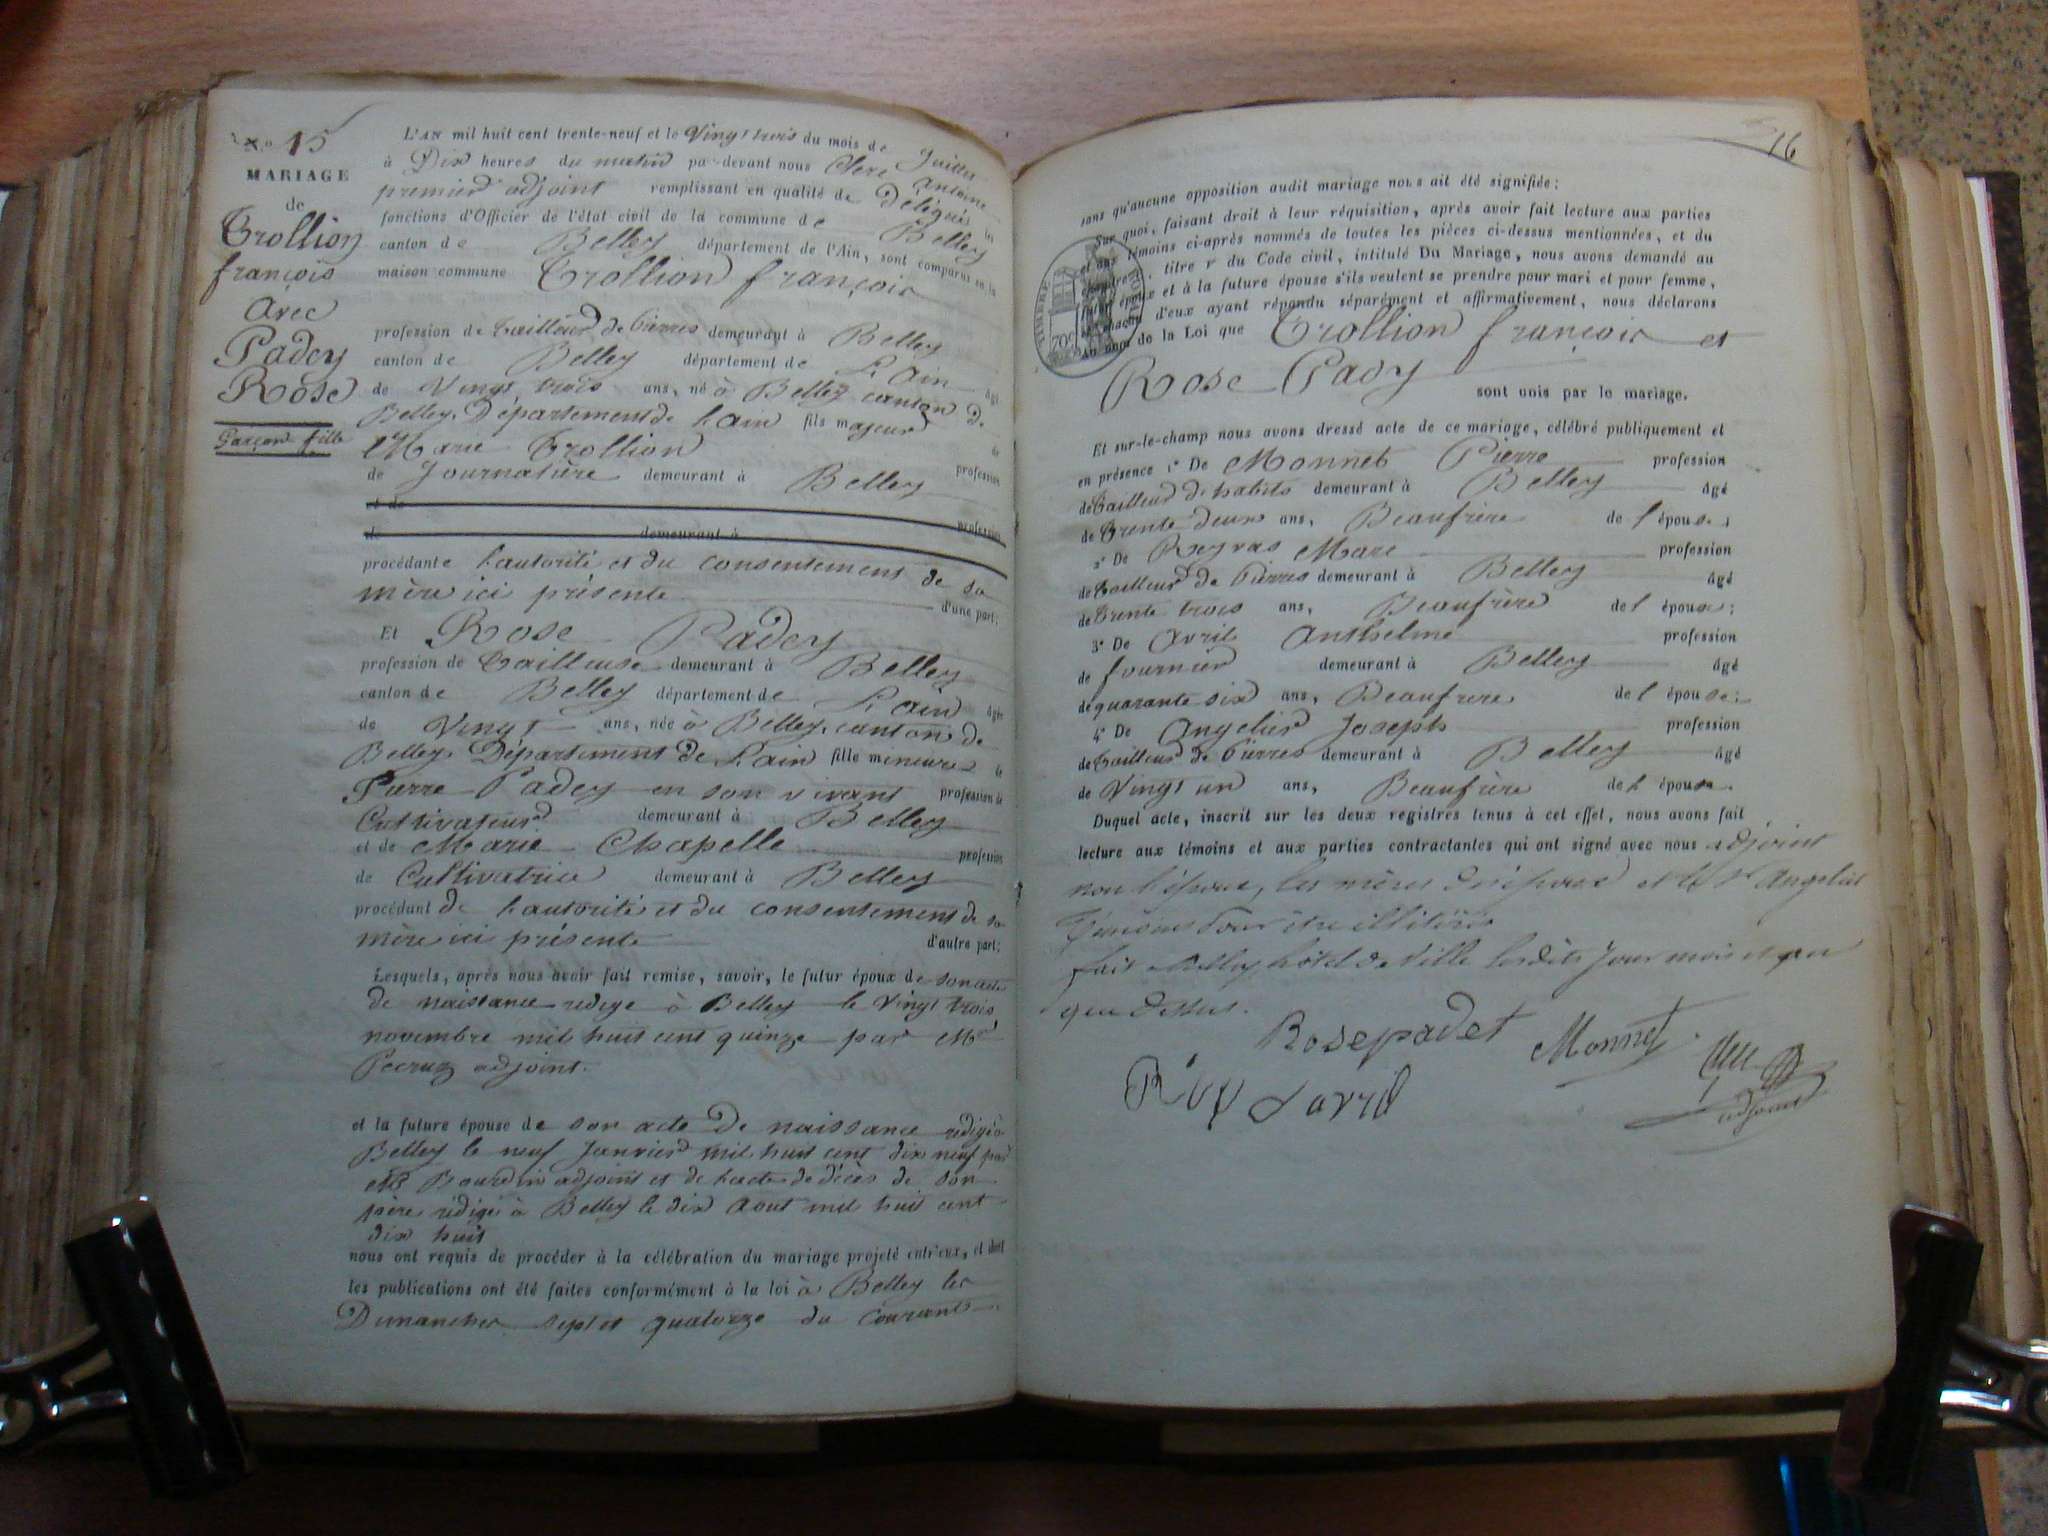 N.o 15
MARIAGE
de
Trollion
françois
avec
Padey
Rose
Garçon fille
L'AN mil huit cent trente-neuf et le Vingt trois du mois de Juillet
à Dix heures du matin par-devant nous Clerc Antoine
premier adjoint remplissant en qualité de délégué les
fonctions d'Officier de l'état civil de la commune de Belley
canton de Belley département de l'Ain, sont comparus en la
maison commune Trollion françois
profession de tailleur de Pierres demeurant à Belley
canton de Belley département de L'Ain âgé
de Vingt trois ans, né à Belley canton de
Belley, Département de L'ain fils majeur de
Marie Trollion profession
de Journalière demeurant à Belley
et de profession
de demeurant à
procédant de l'autorité et du consentement de sa
mère ici présente d'une part;
Et Rose Padey
profession de tailleuse demeurant à Belley
canton de Belley département de L'ain âgée
de Vingt ans, née à Belley, canton de
Belley Département de L'ain fille mineure de
Pierre Padey en son vivant profession de
Cultivateur demeurant à Belley
et de Marie Chapelle profession
de Cultivatrice demeurant à Belley
procédant de l'autorité et du consentement de sa
mère ici présente d'autre part;
Lesquels, après nous avoir fait remise, savoir, le futur époux de son acte
de naissance redigé à Belley le Vingt trois
novembre mil huit cent quinze par Mr
adjoint.
et la future épouse de son acte de naissance redigé à
Belley le neuf Janvier mil huit cent dix neuf par
Mr Bourdin adjoint et de l'acte de décès de son
père rédigé à Belley le dix Aout mil huit cent
dix huit
nous ont requis de procéder à la célébration du mariage projeté entr'eux, et dont
les publications ont été faites conformément à la loi à Belley les
Dimanches sept et quatorze du Courant
16
sans qu'aucune opposition audit mariage nous ait été signifiée;
Sur quoi, faisant droit à leur réquisition, après avoir fait lecture aux parties
et aux témoins ci-après nommés de toutes les pièces ci-dessus mentionnées, et du
titre v du Code civil, intitulé Du Mariage, nous avons demandé au
futur époux et à la future épouse s'ils veulent se prendre pour mari et pour femme,
et chacun d'eux ayant répondu séparément et affirmativement, nous déclarons
au nom de la Loi que Trollion françois et
Rose Pady sont unis par le mariage.
TIMBRE ROYAL
70c
Et sur-le-champ nous avons dressé acte de ce mariage, célébré publiquement et
en présence 1º De Monnet Pierre profession
de tailleur d'habits demeurant à Belley âgé
de trente deux ans, Beaufrère de l'épouse;
2º De Reyras Marc profession
de tailleur de Pierres demeurant à Belley âgé
de trente trois ans, Beaufrère de l'épouse;
3º De Avril Anthelme profession
de fournier demeurant à Belley âgé
de quarante six ans, Beaufrere de l'épouse;
4º De Angelier Joseph profession
de tailleur de Pierres demeurant à Belley âgé
de Vingt un ans, Beaufrère de L'épouse.
Duquel acte, inscrit sur les deux registres tenus à cet effet, nous avons fait
lecture aux témoins et aux parties contractantes qui ont signé avec nous adjoint
non l'époux, les mères des époux et le Sr Angelier
témoins pour être illitérés
fait à Belley hôtel de Ville lesdits jour mois et an
que dessus.
Rosepadet Monnet Clerc
avril adjoint